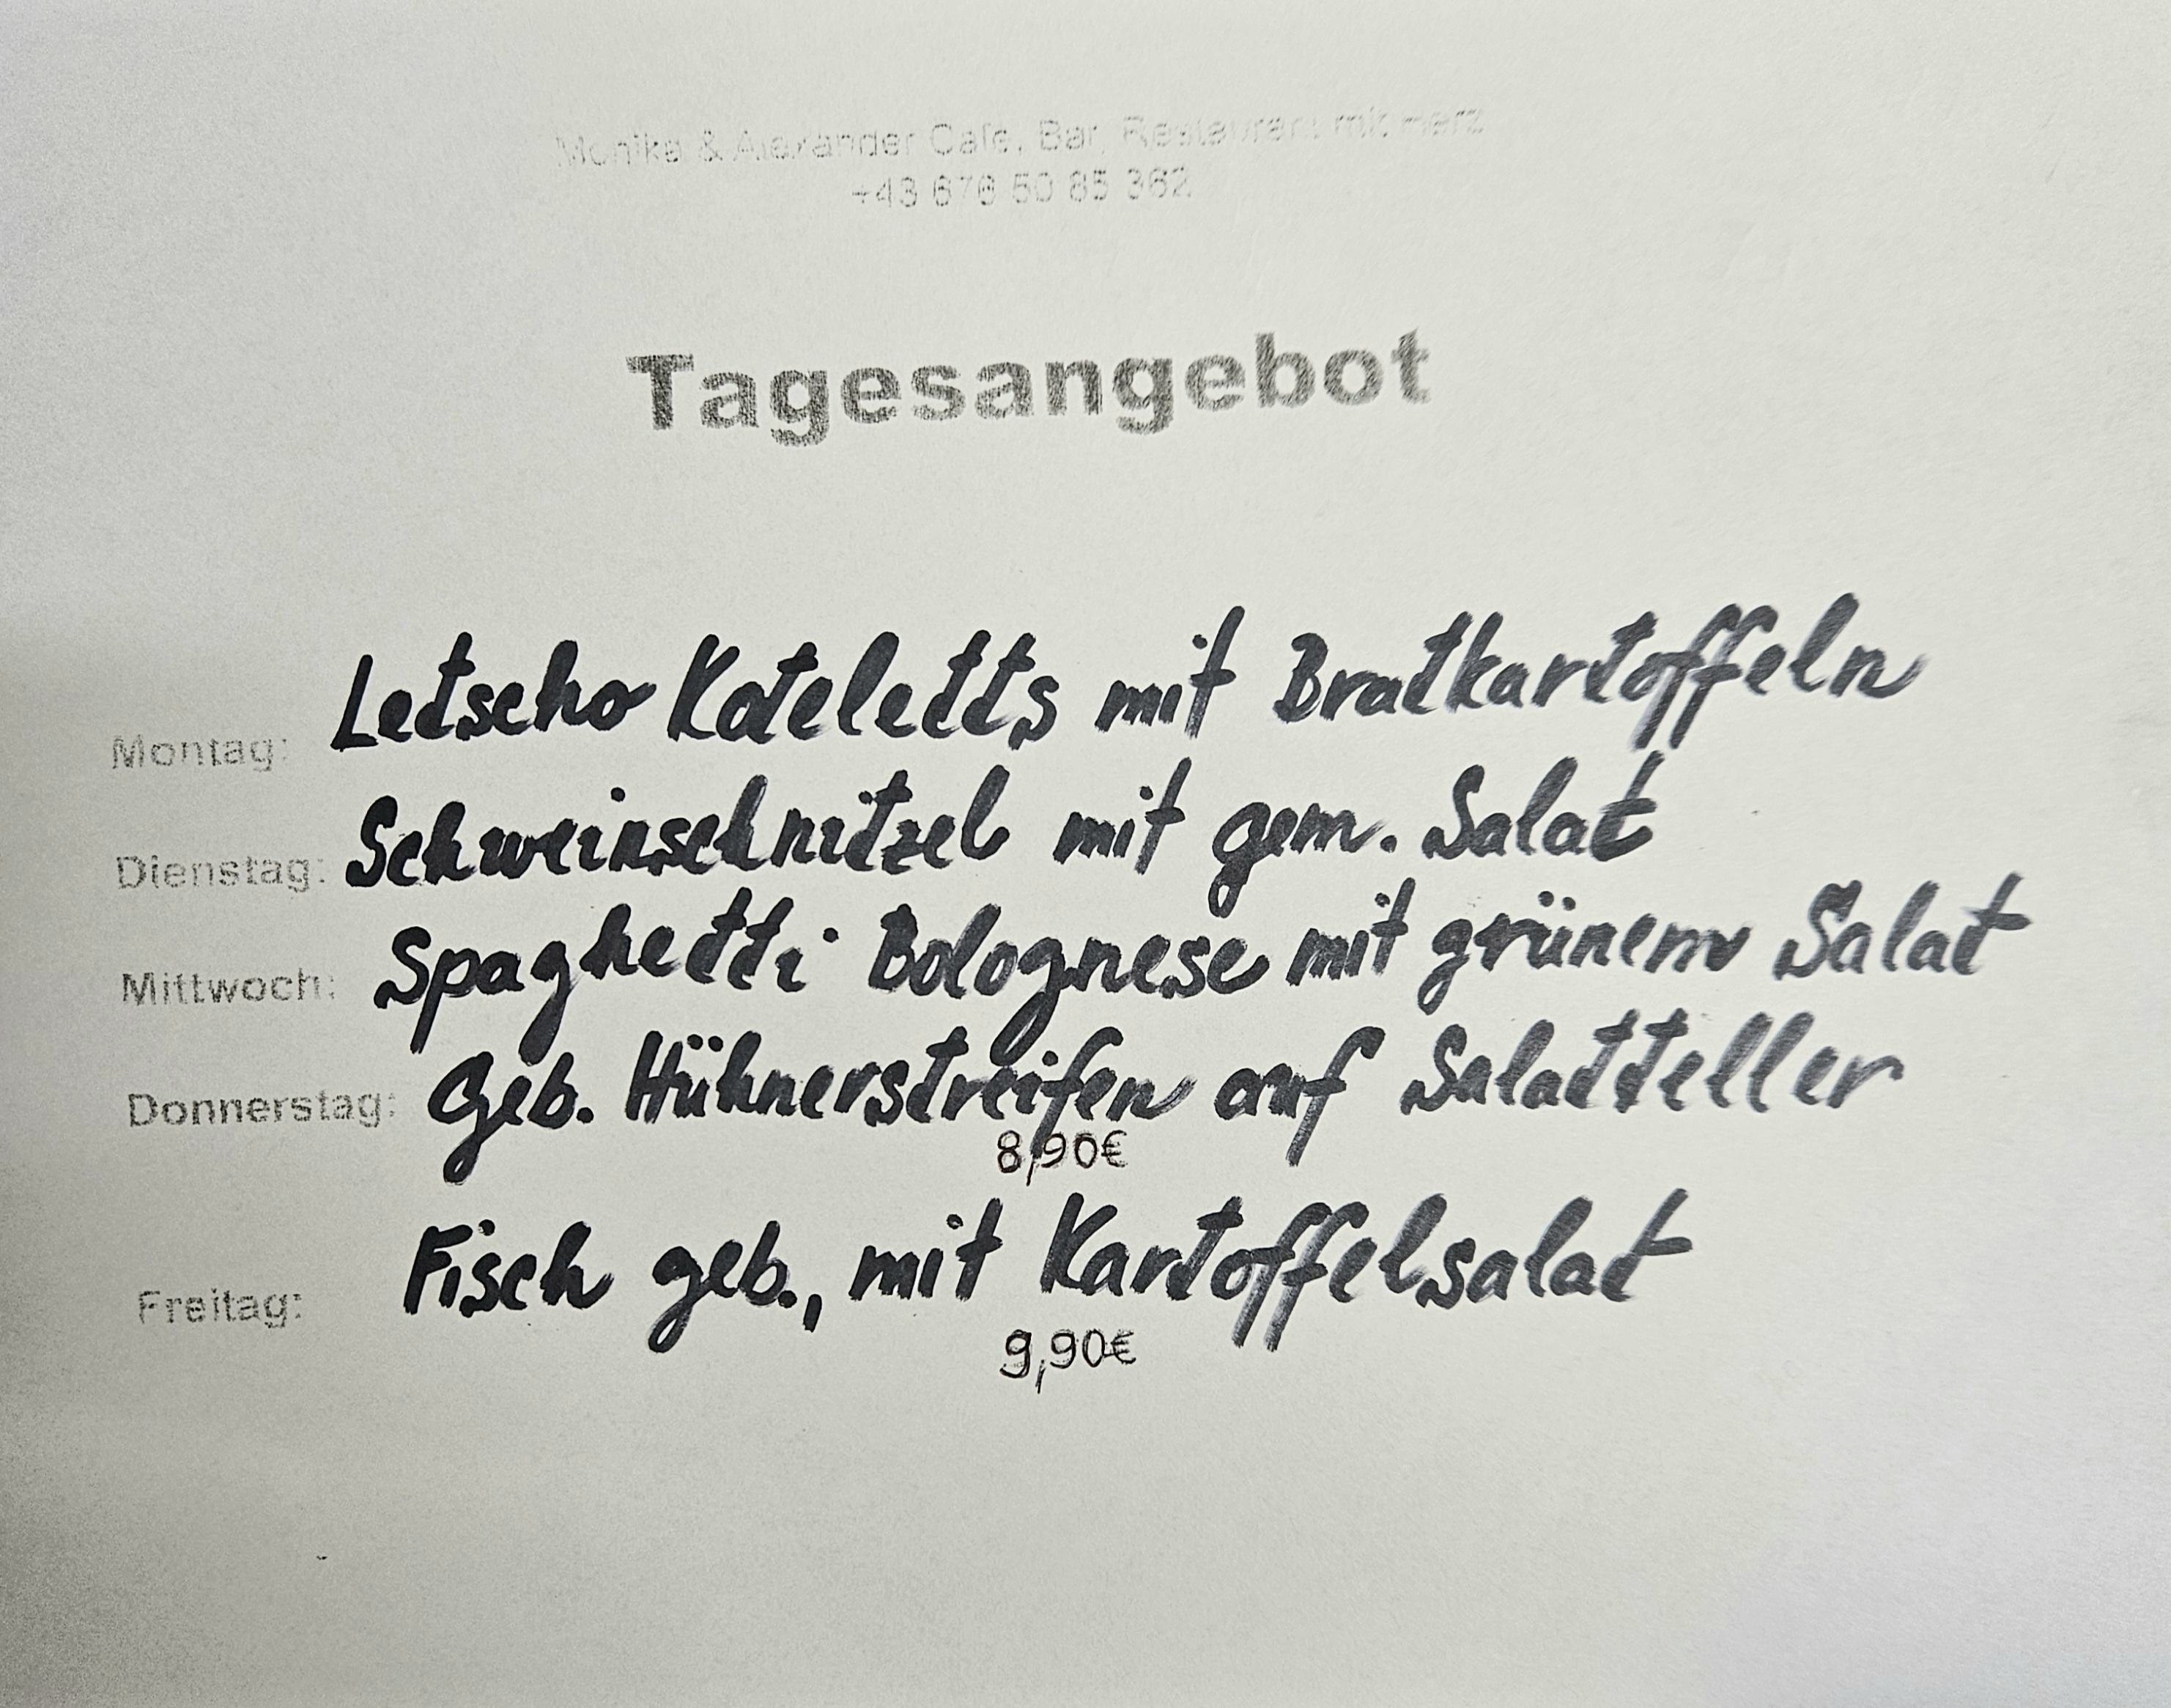 Monika & Alexander Cafe, Bar, Restaurant mit Herz
+43 676 50 85 362
Tagesangebot
Montag: Letscho Koteletts mit Bratkartoffeln
Dienstag: Schweinschnitzel mit gem. Salat
Mittwoch: Spaghetti Bolognese mit grünem Salat
Donnerstag: Geb. Hühnerstreifen auf Salatteller
8,90€
Freitag: Fisch geb., mit Kartoffelsalat
9,90€